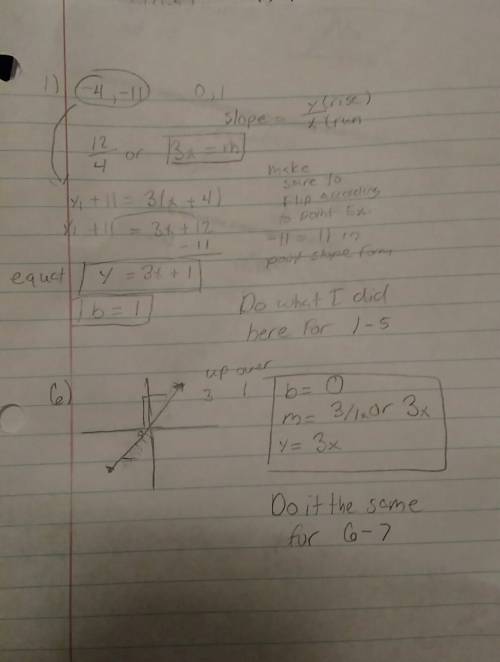 1) -4, -11 0, 1
slope = y(rise)
x(run
12/4 or 3x = m
y, + 11 = 3(x + 4)
y, + 11 = 3x + 12
- 11
equat y = 3x + 1
b = 1
make
sure to
flip according
to point Ex.
-11 = 11 in
point slope form
Do what I did
here for 1-5
6) up over
3 1
b = 0
m = 3/1x or 3x
y = 3x
Do it the same
for 6-7